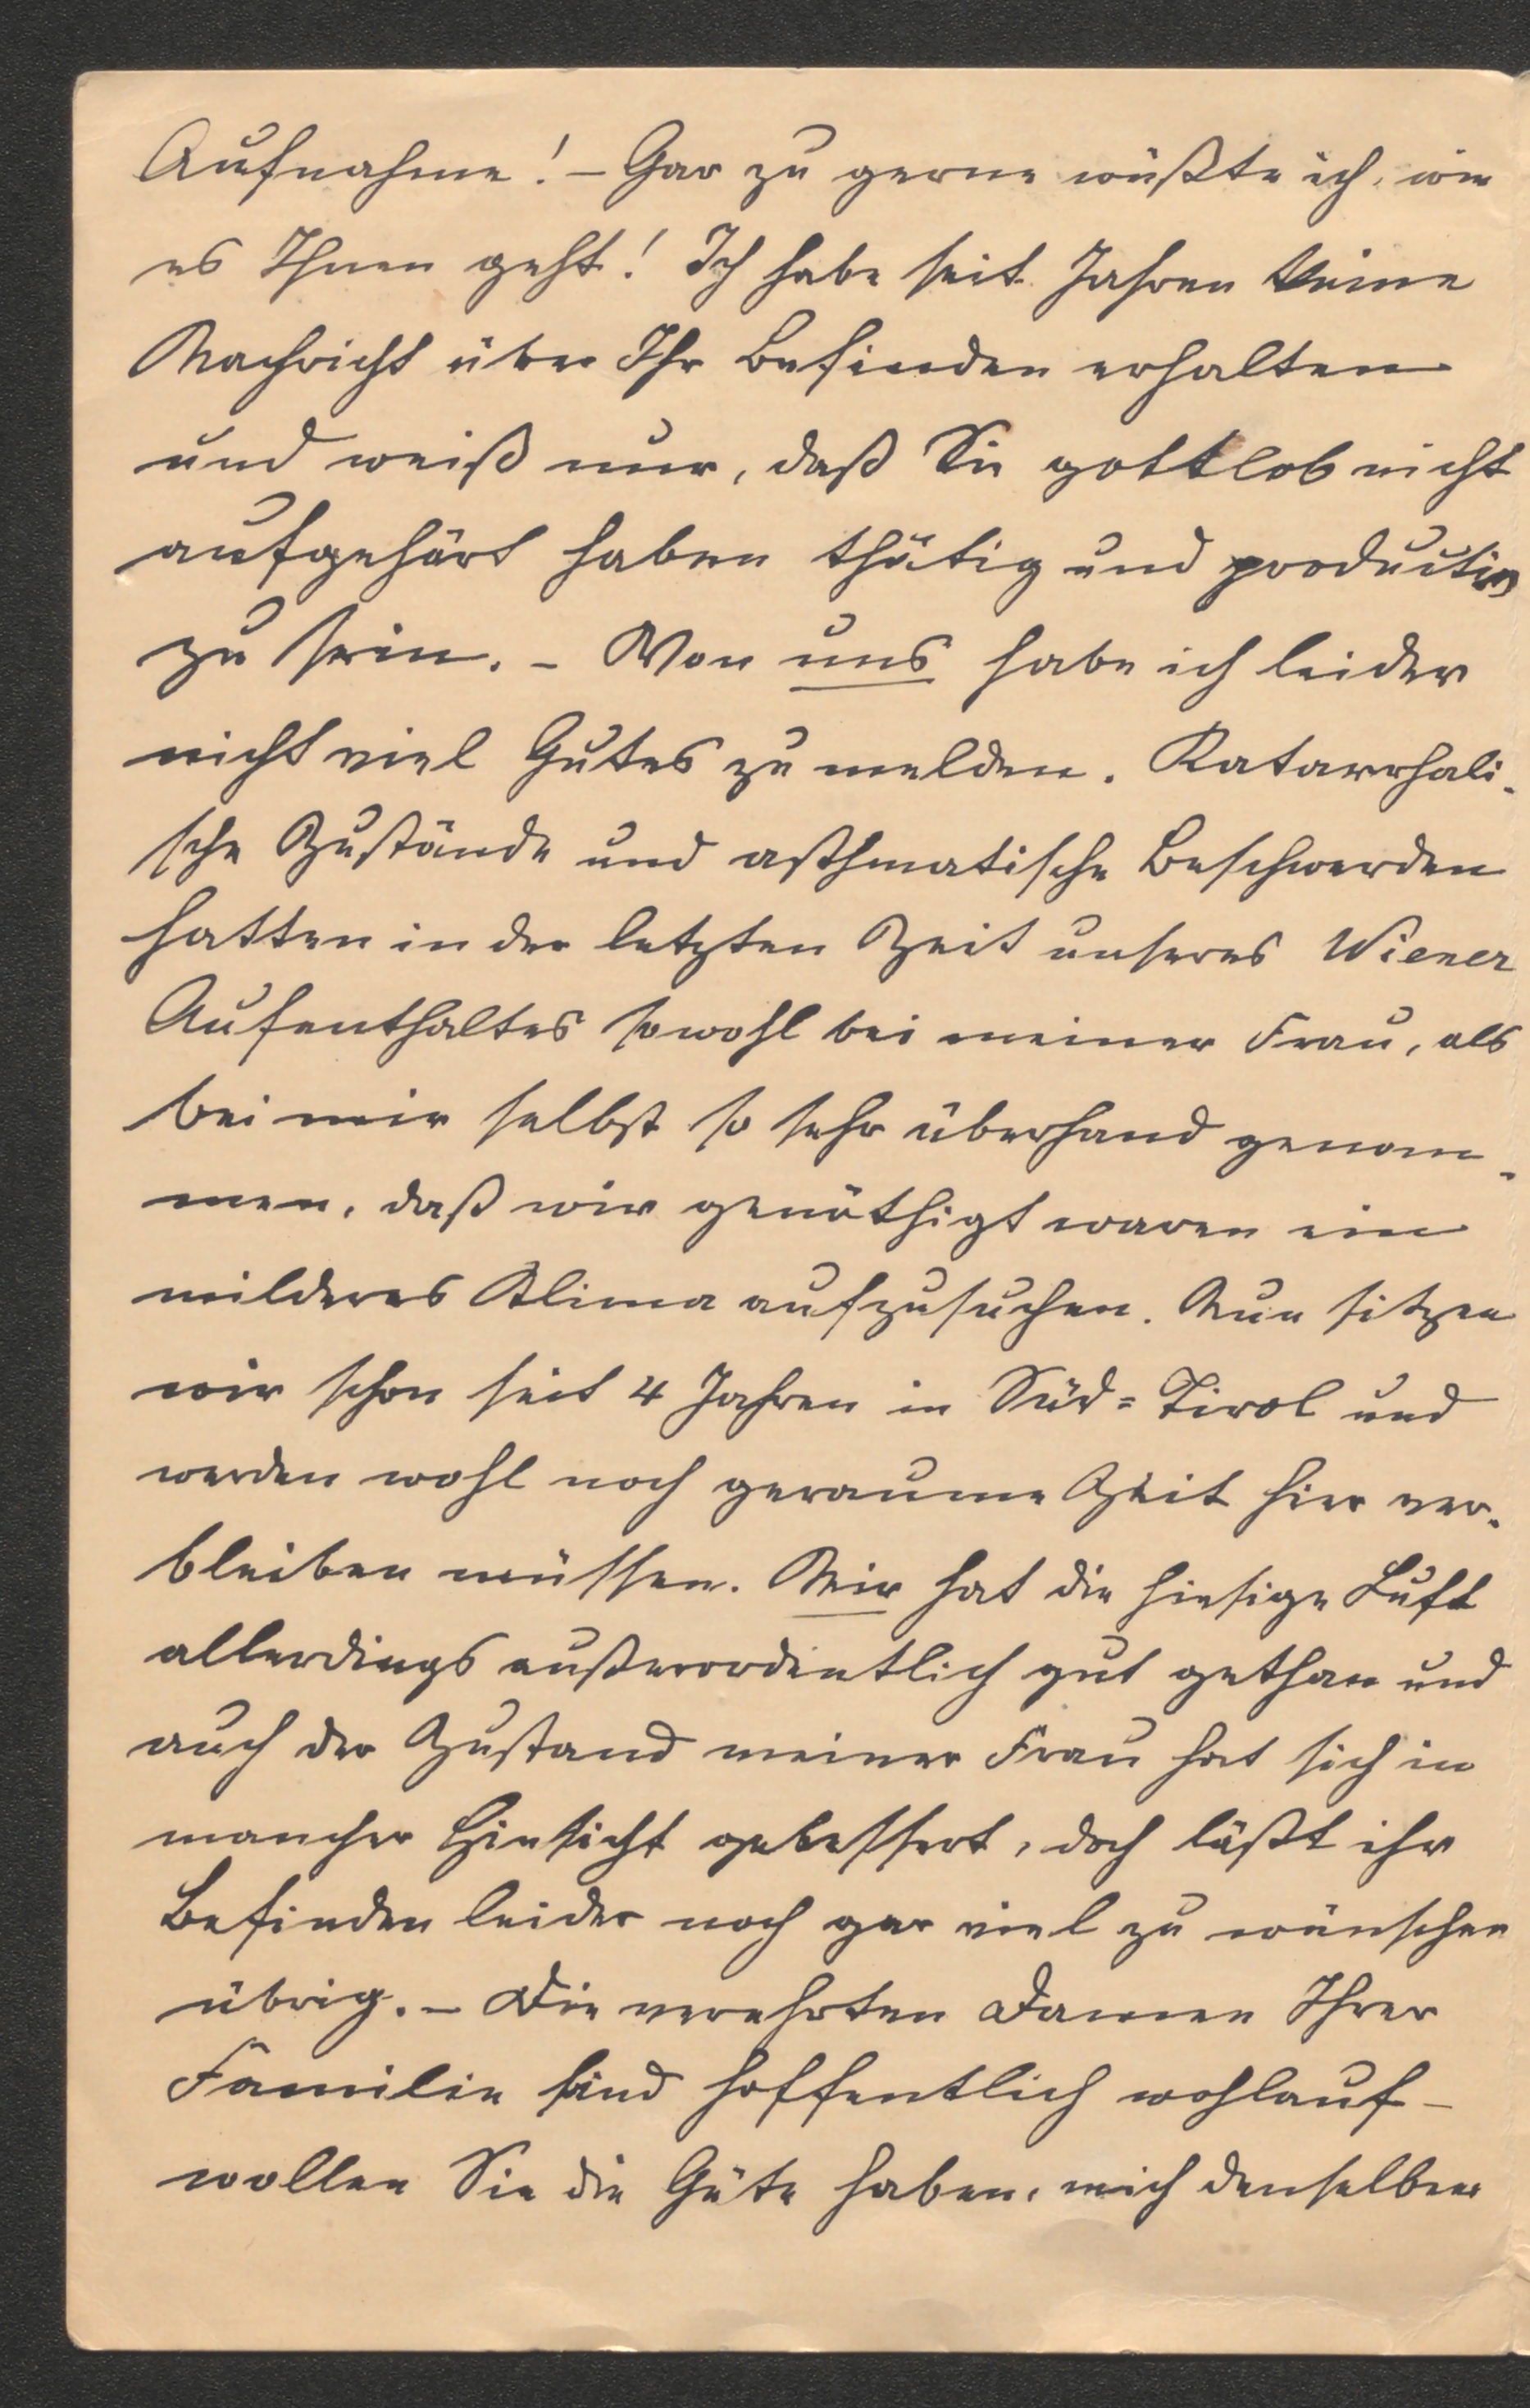 Aufnahme! – Gar zu gerne wüßte ich, wie
es Ihnen geht! Ich habe seit Jahren keine
Nachricht über Ihr Befinden erhalten
und weiß nur, daß Sie gottlob nicht
aufgehört haben thätig und productiv
zu sein. – Von uns habe ich leider
nicht viel Gutes zu melden. Katarrhali-
sche Zustände und asthmatische Beschwerden
hatten in der letzten Zeit unseres Wiener
Aufenthaltes sowohl bei meiner Frau, als
bei mir selbst so sehr überhand genom-
men, daß wir genöthigt waren ein
milderes Klima aufzusuchen. Nun sitzen
wir schon seit 4 Jahren in Süd=Tirol und
werden wohl noch geraume Zeit hier ver-
bleiben müssen. Mir hat die hiesige Luft
allerdings außerordentlich gut gethan und
auch der Zustand meiner Frau hat sich in
mancher Hinsicht gebessert, doch läßt ihr
Befinden leider noch gar viel zu wünschen
übrig. – Die verehrten Damen Ihrer
Familie sind hoffentlich wohlauf –
wollen Sie die Güte haben, mich denselben